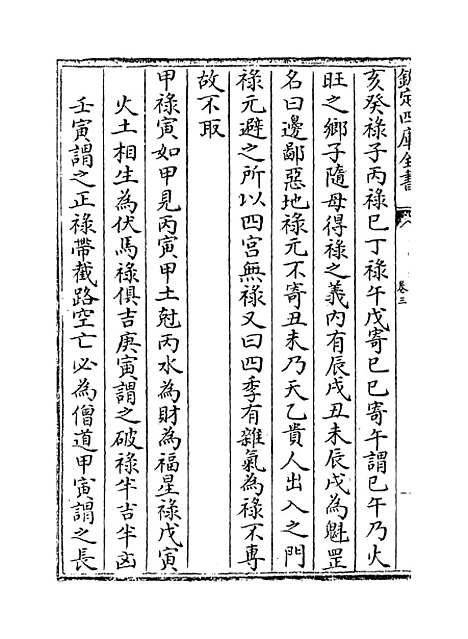 欽定四庫全書
卷三
亥癸祿子丙祿巳丁祿午戊寄巳巳寄午謂巳午乃火
旺之鄉子隨母得祿之義內有辰戌丑未辰戌為魁罡
名曰邊鄙惡地祿元不寄丑未乃天乙貴人出入之門
祿元避之所以四宮無祿又曰四季有雜氣為祿不專
故不取
甲祿寅如甲見丙寅甲土尅丙水為財為福星祿戊寅
火土相生為伏馬祿俱吉庚寅謂之破祿半吉半凶
壬寅謂之正祿帶截路空亡必為僧道甲寅謂之長